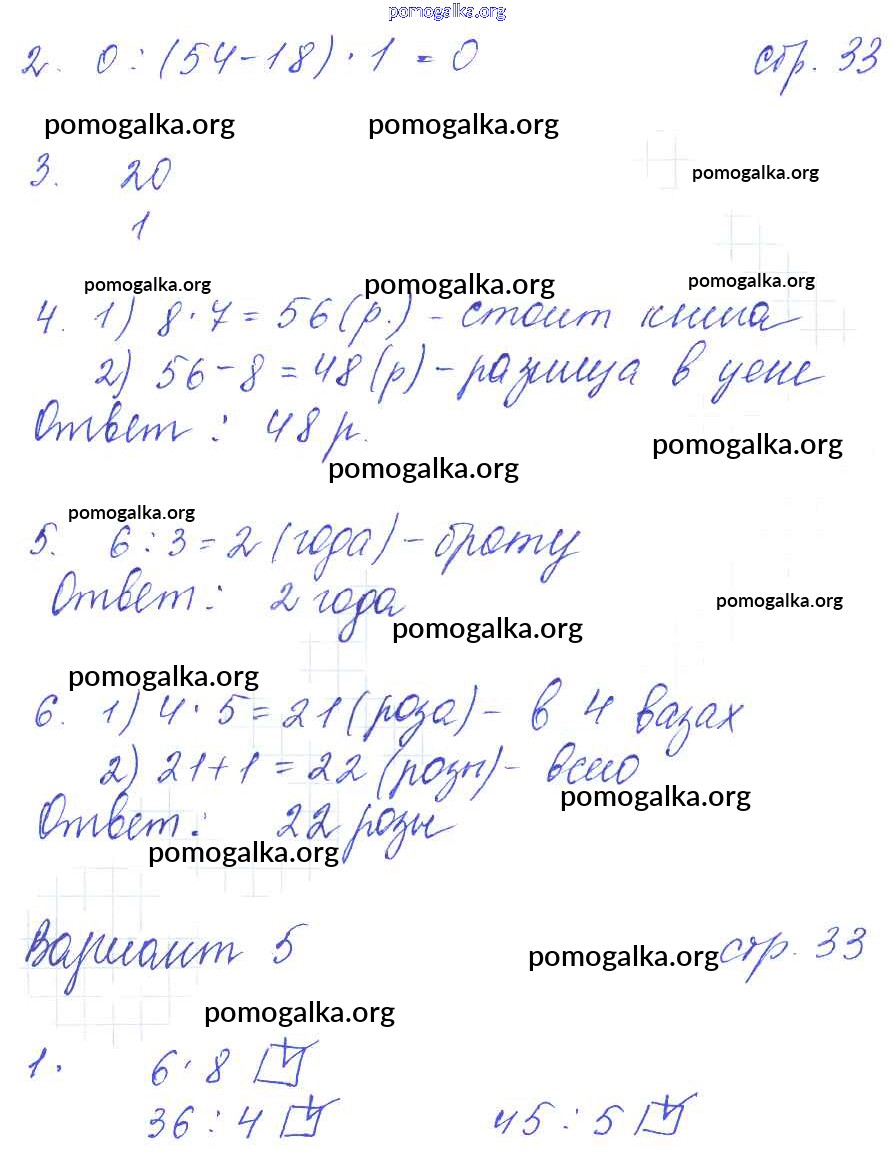 pomogalka.org
2. 0 : (54 - 18) · 1 = 0 стр. 33
pomogalka.org pomogalka.org
3. 20 pomogalka.org
1
pomogalka.org pomogalka.org pomogalka.org
4. 1) 8 · 7 = 56 (р.) - стоит книга
2) 56 - 8 = 48 (р) - разница в цене
Ответ : 48 р. pomogalka.org
pomogalka.org
pomogalka.org
5. 6 : 3 = 2 (года) - брату
Ответ : 2 года pomogalka.org
pomogalka.org
pomogalka.org
6. 1) 4 · 5 = 21 (роза) - в 4 вазах
2) 21 + 1 = 22 (розы) - всего
pomogalka.org
Ответ : 22 розы
pomogalka.org
Вариант 5 pomogalka.org стр. 33
pomogalka.org
1. 6 · 8
36 : 4 45 : 5